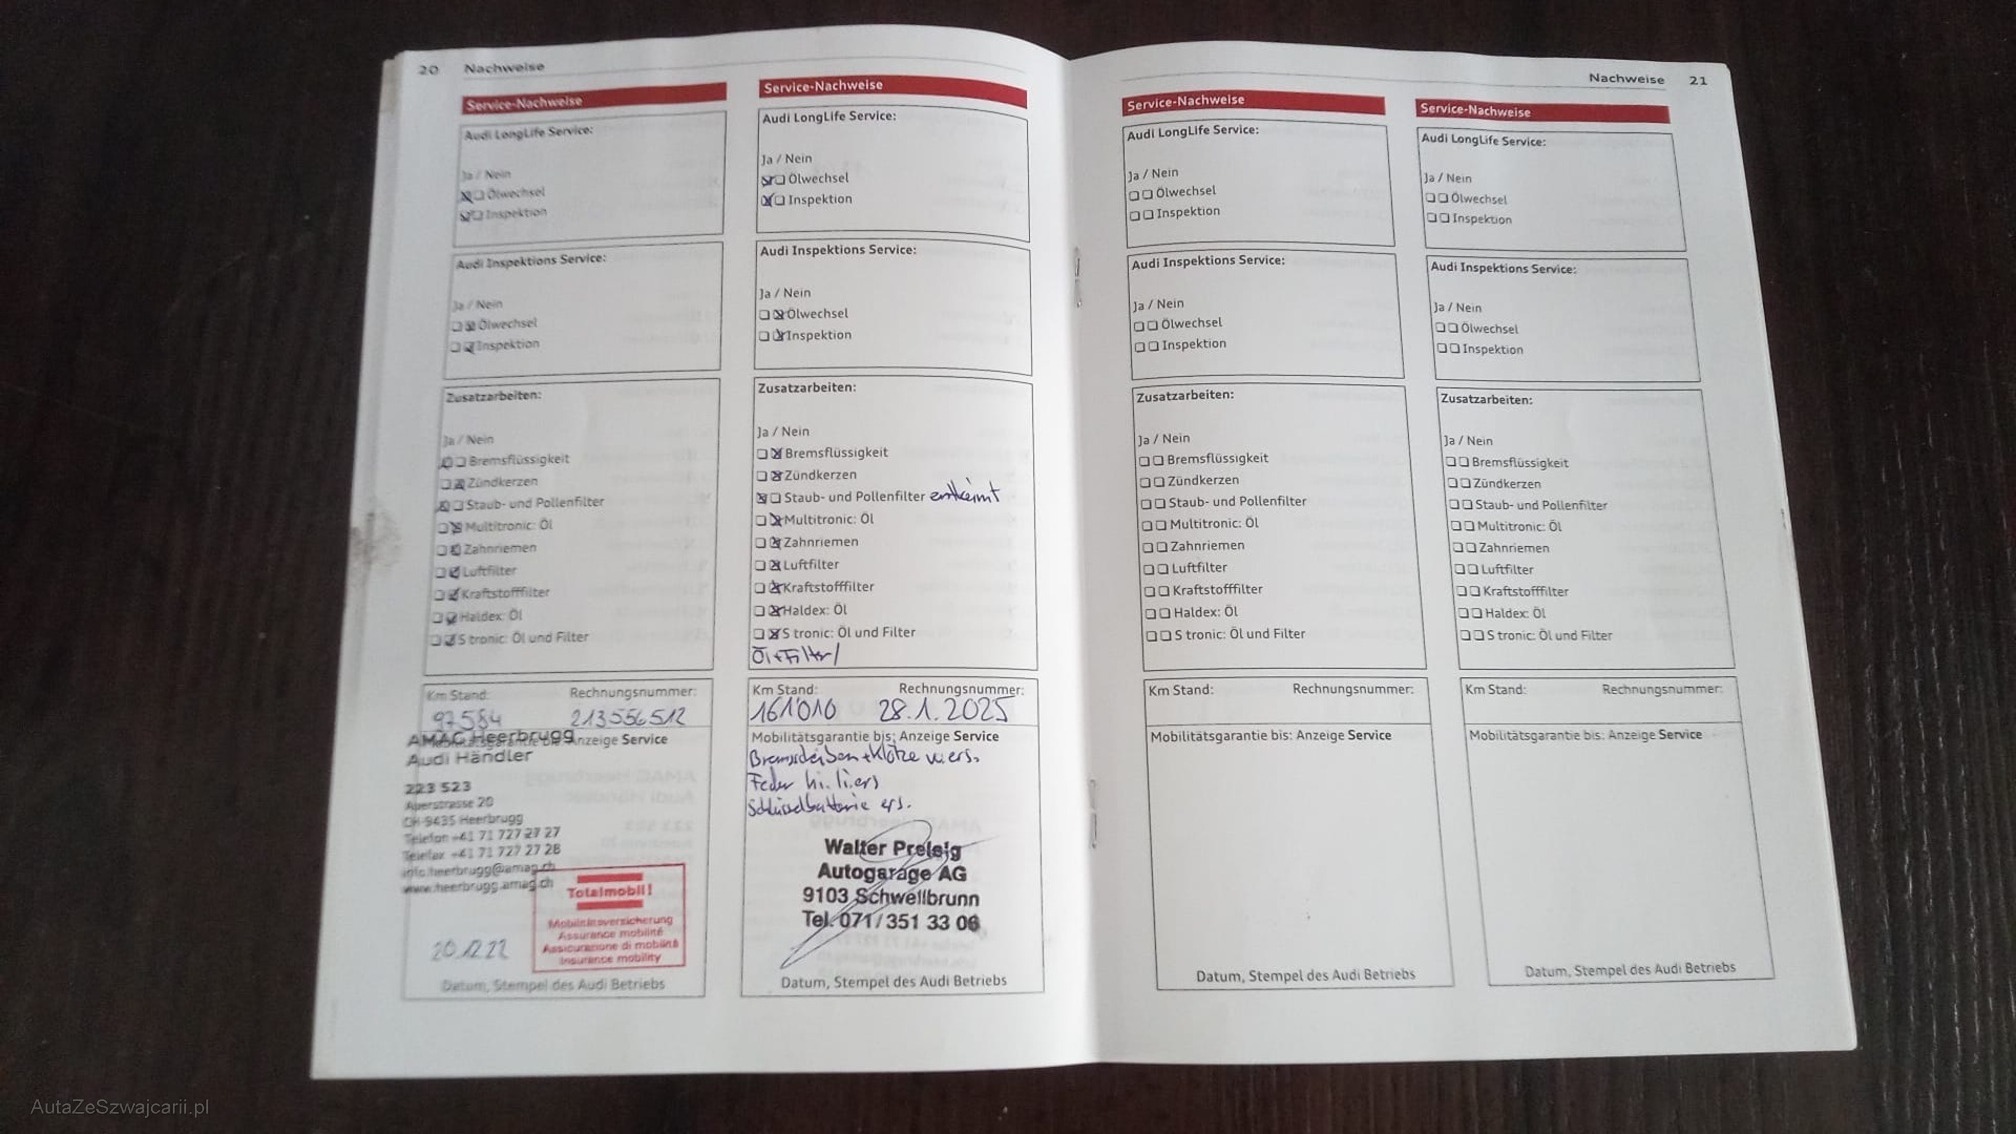 20 Nachweise
Service-Nachweise
Audi LongLife Service:
Ja / Nein
Ölwechsel
Inspektion
Audi Inspektions Service:
Ja / Nein
Ölwechsel
Inspektion
Zusatzarbeiten:
Ja / Nein
Bremsflüssigkeit
Zündkerzen
Staub- und Pollenfilter
Multitronic: Öl
Zahnriemen
Luftfilter
Kraftstofffilter
Haldex: Öl
S tronic: Öl und Filter
Km Stand: Rechnungsnummer:
97584 213556512
Anzeige Service
AMAG Heerbrugg
Audi Händler
223 523
CH-9435 Heerbrugg
Telefon +41 71 727 27 27
Telefax +41 71 727 27 28
info.heerbrugg@amag.ch
www.heerbrugg.amag.ch
Totalmobil!
Mobilitätsversicherung
Assurance mobilité
Assicurazione di mobilità
Insurance mobility
20.12.22
Datum, Stempel des Audi Betriebs
Service-Nachweise
Audi LongLife Service:
Ja / Nein
Ölwechsel
Inspektion
Audi Inspektions Service:
Ja / Nein
Ölwechsel
Inspektion
Zusatzarbeiten:
Ja / Nein
Bremsflüssigkeit
Zündkerzen
Staub- und Pollenfilter entkeimt
Multitronic: Öl
Zahnriemen
Luftfilter
Kraftstofffilter
Haldex: Öl
S tronic: Öl und Filter
Öl+Filter/
Km Stand: Rechnungsnummer:
161'010 28.1.2025
Mobilitätsgarantie bis: Anzeige Service
Bremsscheiben+Klötze v. ers.
Feder hi. li ers
Schlüsselbatterie ers.
Walter Preisig
Autogarage AG
9103 Schwellbrunn
Tel. 071/351 33 06
Datum, Stempel des Audi Betriebs
Nachweise 21
Service-Nachweise
Audi LongLife Service:
Ja / Nein
Ölwechsel
Inspektion
Audi Inspektions Service:
Ja / Nein
Ölwechsel
Inspektion
Zusatzarbeiten:
Ja / Nein
Bremsflüssigkeit
Zündkerzen
Staub- und Pollenfilter
Multitronic: Öl
Zahnriemen
Luftfilter
Kraftstofffilter
Haldex: Öl
S tronic: Öl und Filter
Km Stand: Rechnungsnummer:
Mobilitätsgarantie bis: Anzeige Service
Datum, Stempel des Audi Betriebs
Service-Nachweise
Audi LongLife Service:
Ja / Nein
Ölwechsel
Inspektion
Audi Inspektions Service:
Ja / Nein
Ölwechsel
Inspektion
Zusatzarbeiten:
Ja / Nein
Bremsflüssigkeit
Zündkerzen
Staub- und Pollenfilter
Multitronic: Öl
Zahnriemen
Luftfilter
Kraftstofffilter
Haldex: Öl
S tronic: Öl und Filter
Km Stand: Rechnungsnummer:
Mobilitätsgarantie bis: Anzeige Service
Datum, Stempel des Audi Betriebs
AutaZeSzwajcarii.pl